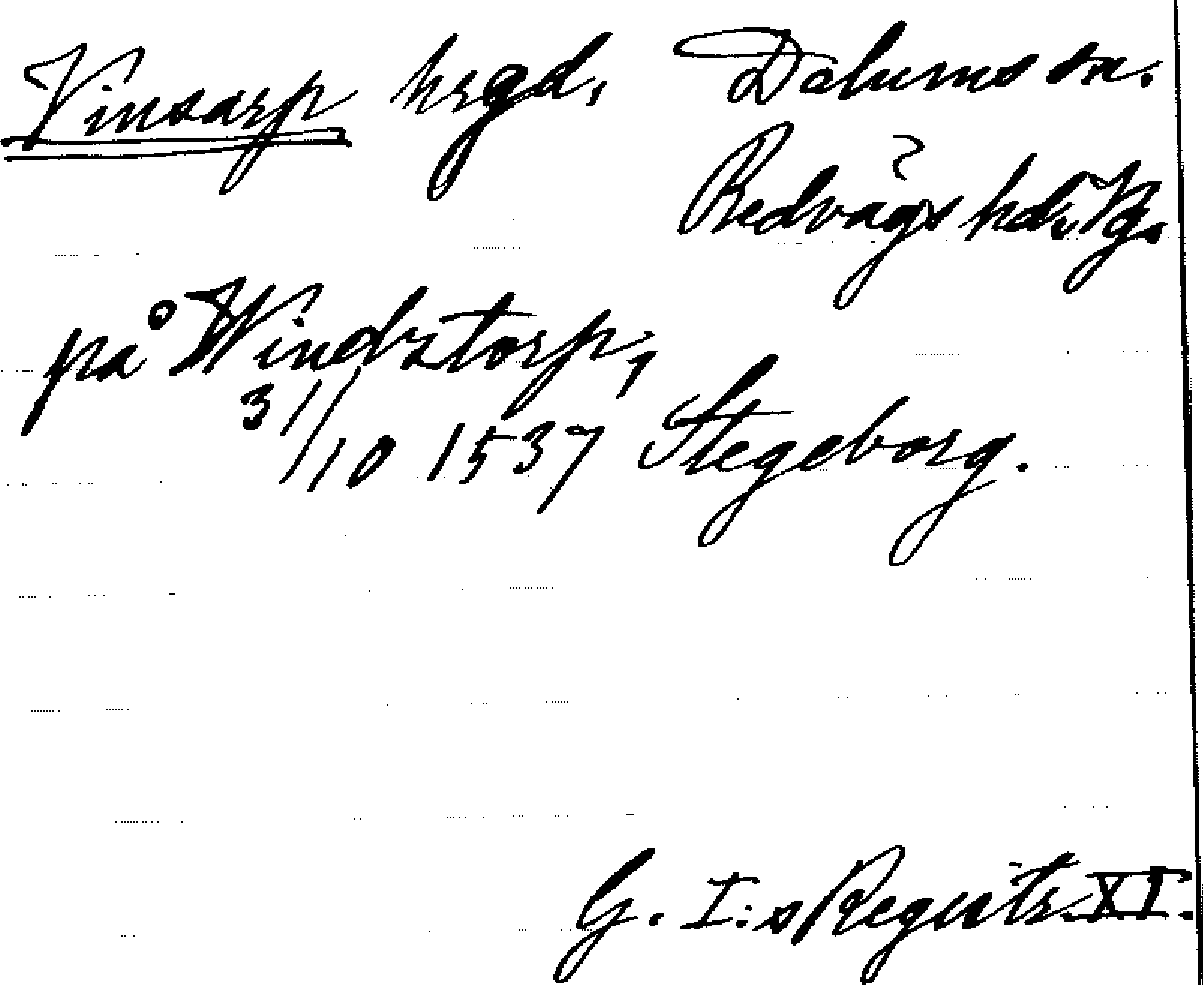 Vinsarp hrgd, Dalums sn.
Redvägs hd, Vg.
på Windztorp,
31/10 1537 Stegeborg.
G. I:s Registr. XI.